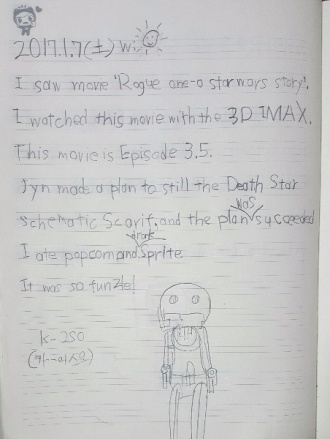 2017.1.7(土) w:
I saw movie 'Rogue one-a star wars story'.
I watched this movie with the 3D IMAX.
This movie is Episode 3.5.
Jyn made a plan to still the Death Star
was
schematic Scarif, and the plan succeeded
drank
I ate popcorn and Sprite
It was so fun
k-2SO